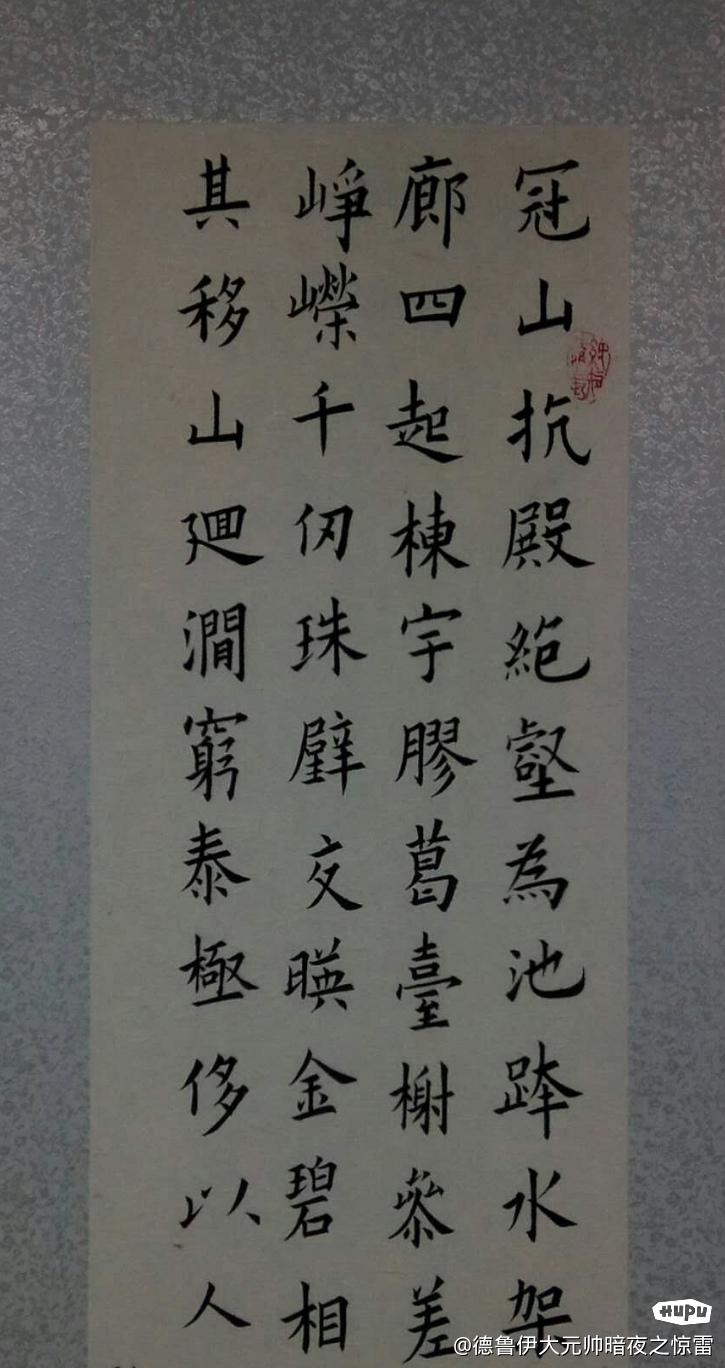 冠山抗殿絶壑為池跨水架
廊四起棟宇膠葛臺榭參差
崢嶸千仞珠璧交暎金碧相
其移山廻澗窮泰極侈以人
HUPU
@德鲁伊大元帅暗夜之惊雷